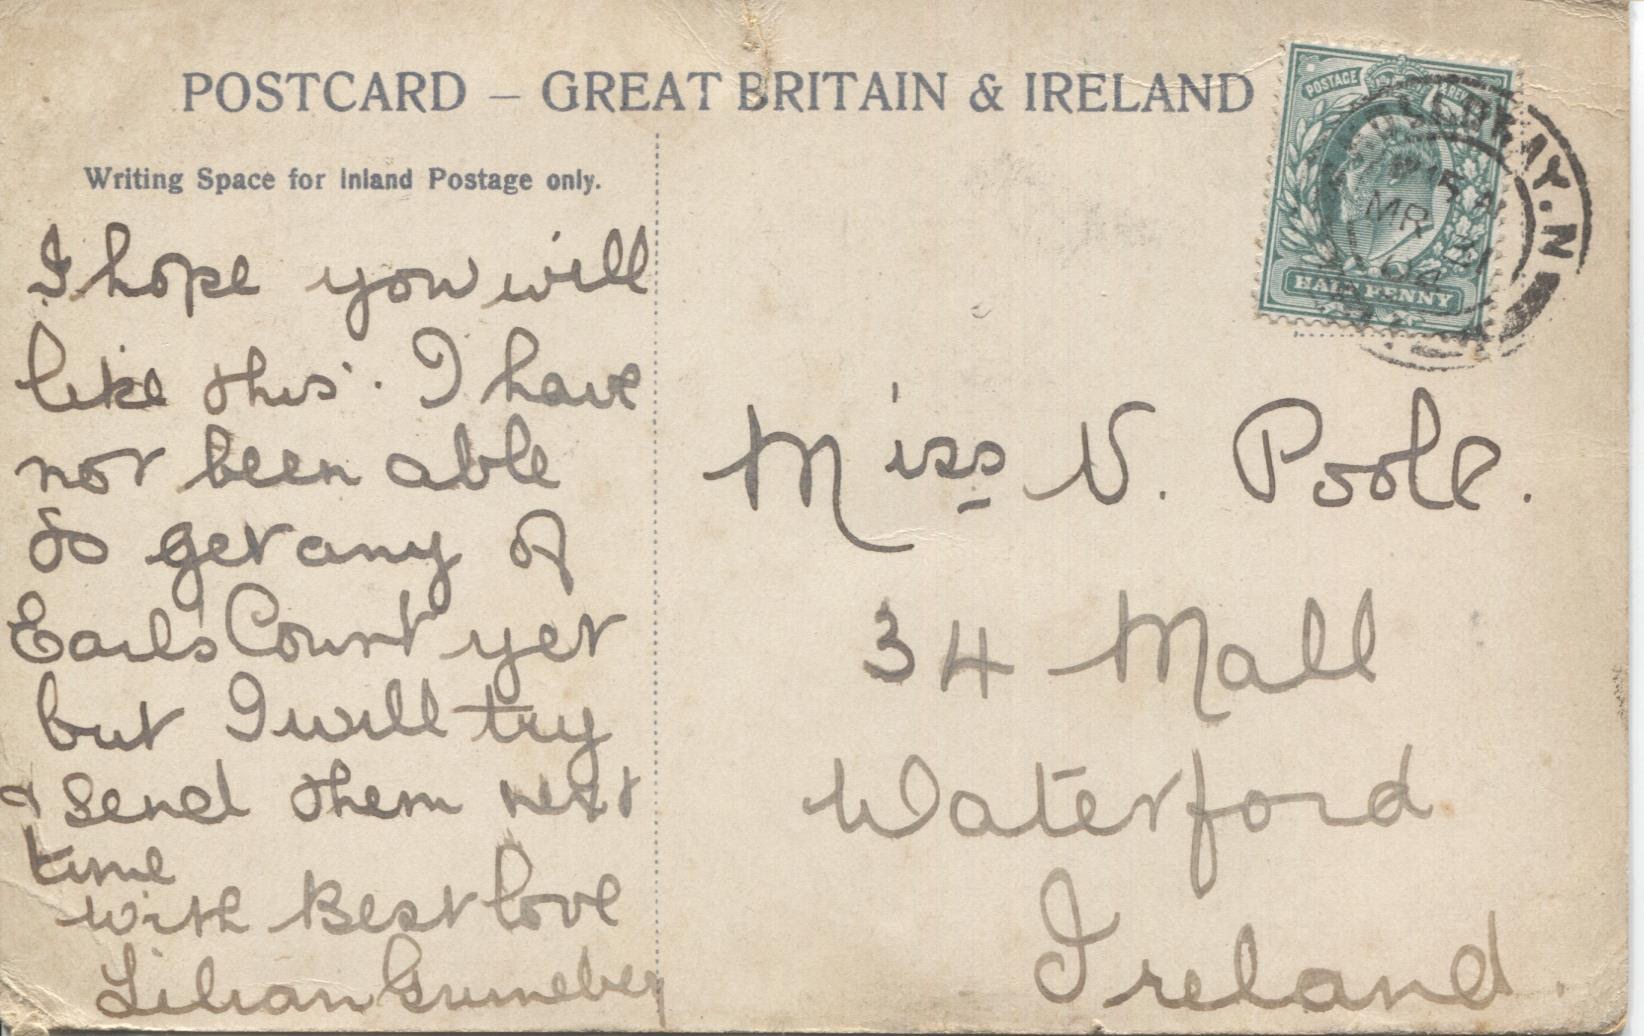 POSTCARD – GREAT BRITAIN & IRELAND
Writing Space for Inland Postage only.
I hope you will
like this. I have
not been able
to get any of
Earls Court yet
but I will try
& send them next
time
with Best love
Lilian
Miss V. Poole.
34 Mall
Waterford
Ireland.
POSTAGE & REV
HALF PENNY
MR 31
04